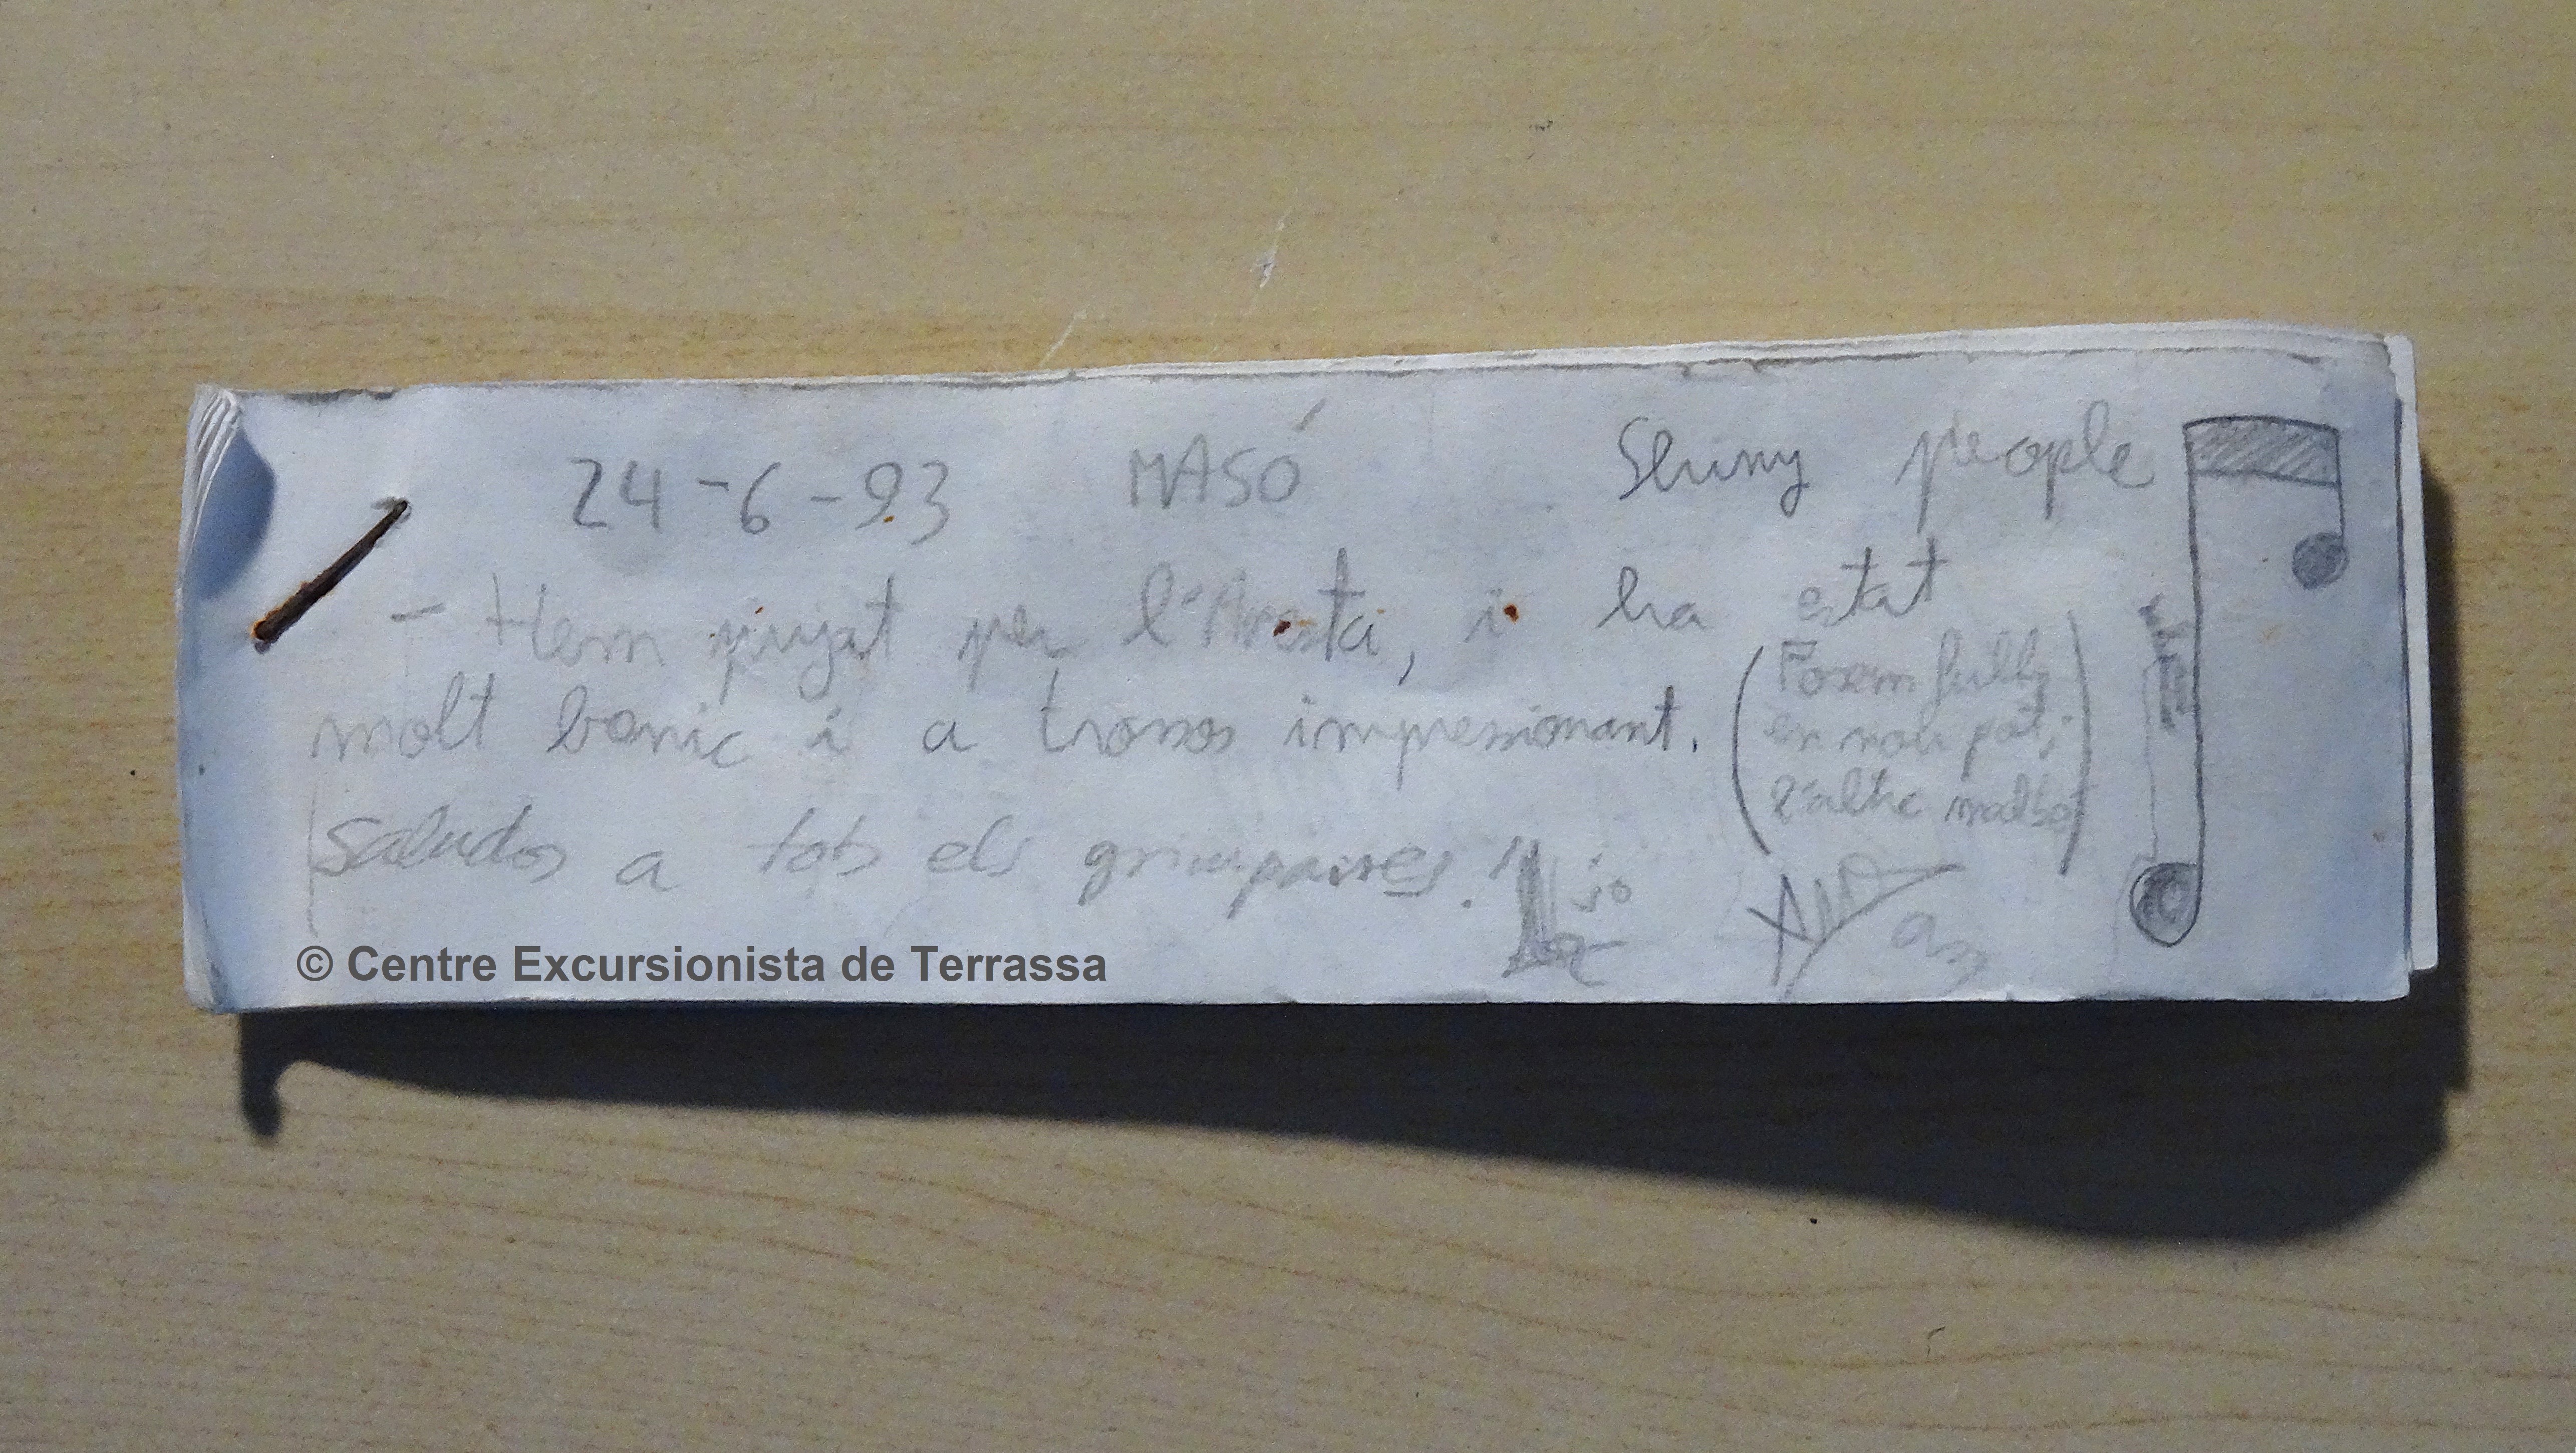 24-6-93 MASÓ Shiny people
- Hem pujat per l'Aresta, i ha estat
molt bonic i a trossos impressionant.
(Posem fulls
en nou pot,
l'altre
saludos a tots els grimpaires.
© Centre Excursionista de Terrassa